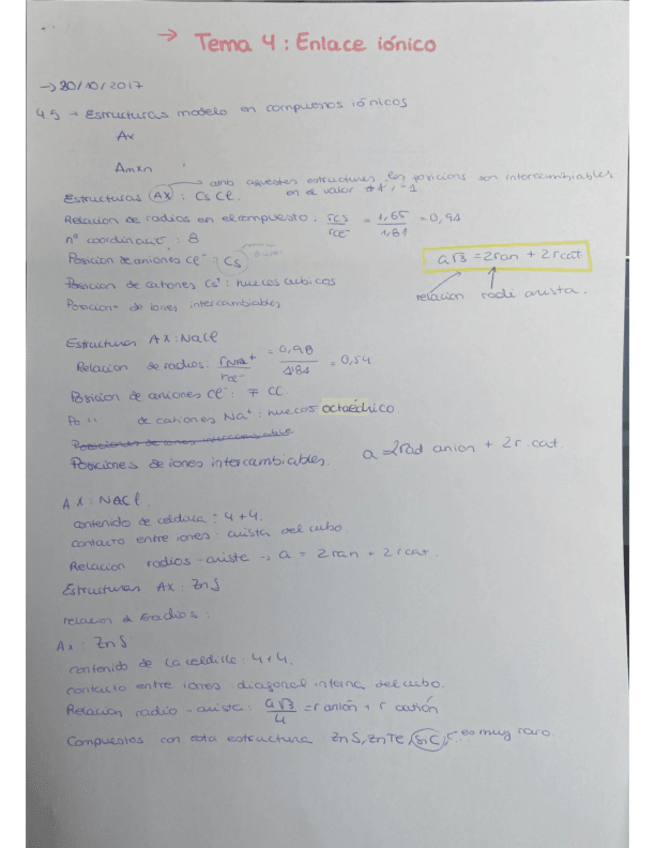 → Tema 4: Enlace iónico
→ 30/10/2017
4.5 → Estructuras modelo en compuestos iónicos
Ax
Amxn
→ amb aquestes estructures les posicions son intercambiables
Estructuras AX : CsCl. en el valor +1, -1
Relacion de radios en el compuesto : rCs / rCl- = 1,65 / 1,81 = 0,91
nº coordinació : 8
Posicion de aniones Cl- : Cs
a√3 = 2ran + 2rcat
Posicion de cationes Cs+ : huecos cubicos
relacion radi arista.
Posicion de iones intercambiables
Estructuras AX: NaCl
Relacion de radios: rNa+ / rCl- = 0,98 / 1,81 = 0,54
Posicion de aniones Cl- : FCC.
Po " de cationes Na+ : huecos octaédrico
Posiciones de iones intercambiable
Posiciones de iones intercambiables. a = 2rad anion + 2r.cat.
AX: NACl.
contenido de celdilla : 4+4.
contacto entre iones : arista del cubo.
Relacion radios-ariste → a = 2ran + 2rcat.
Estructuras AX: ZnS
relacion de radios :
Ax : ZnS
contenido de la celdilla : 4+4.
contacto entre iones : diagonal interna del cubo.
Relacion radio-arista : a√3 / 4 = r anión + r catión
Compuestos con esta estructura ZnS, ZnTe, SiC, es muy raro.